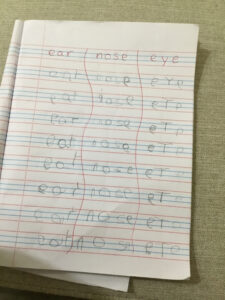 ear nose eye
eat nose eye
eat nose ere
ear nose eTe
eat nose eTe
eat nose eTe
ear nose eTe
eat nose eTe
eat nose ere